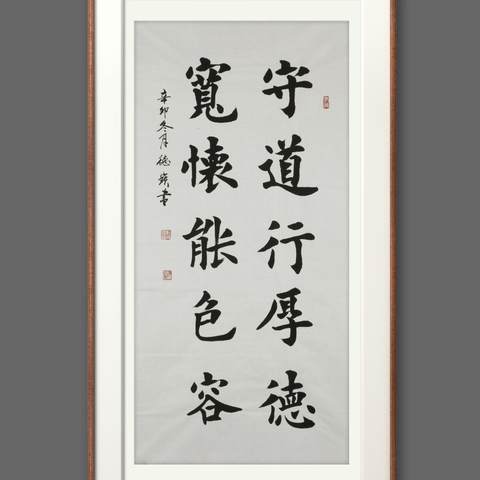 守道行厚德
寬懷能色容
辛卯冬月德嶺書